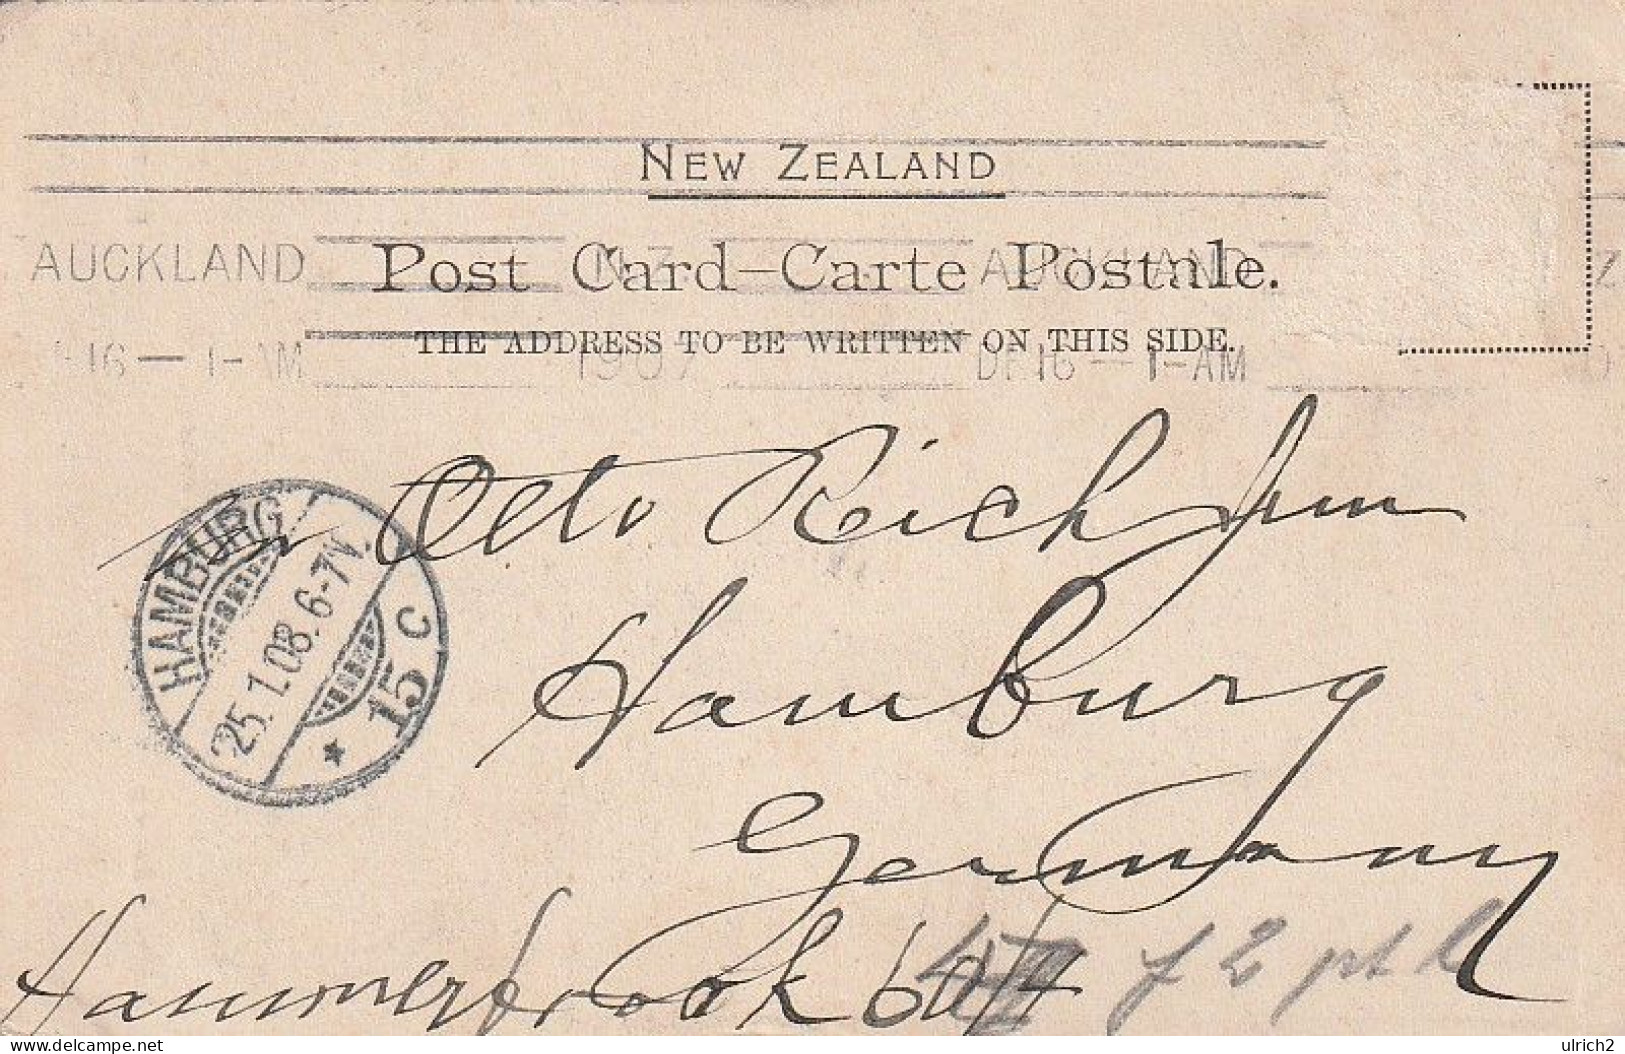 NEW ZEALAND
AUCKLAND N.Z. AUCKLAND Z
Post Card–Carte Postale.
THE ADDRESS TO BE WRITTEN ON THIS SIDE.
16 — 1-AM 1907 DE 16 — 1-AM
Otto Reich Jun
HAMBURG
25.1.08.6-7N.
* 15 C
Hamburg
Germany
Hammerbrook 60/4
delcampe.net
ulrich2